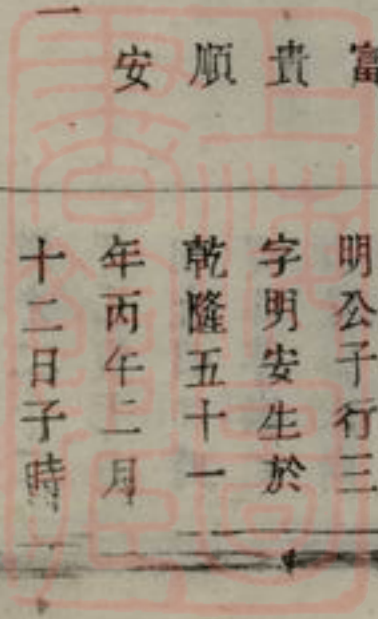 富
貴
順
安
一
明公子行三
字明安生於
乾隆五十一
年丙午二月
十二日子時